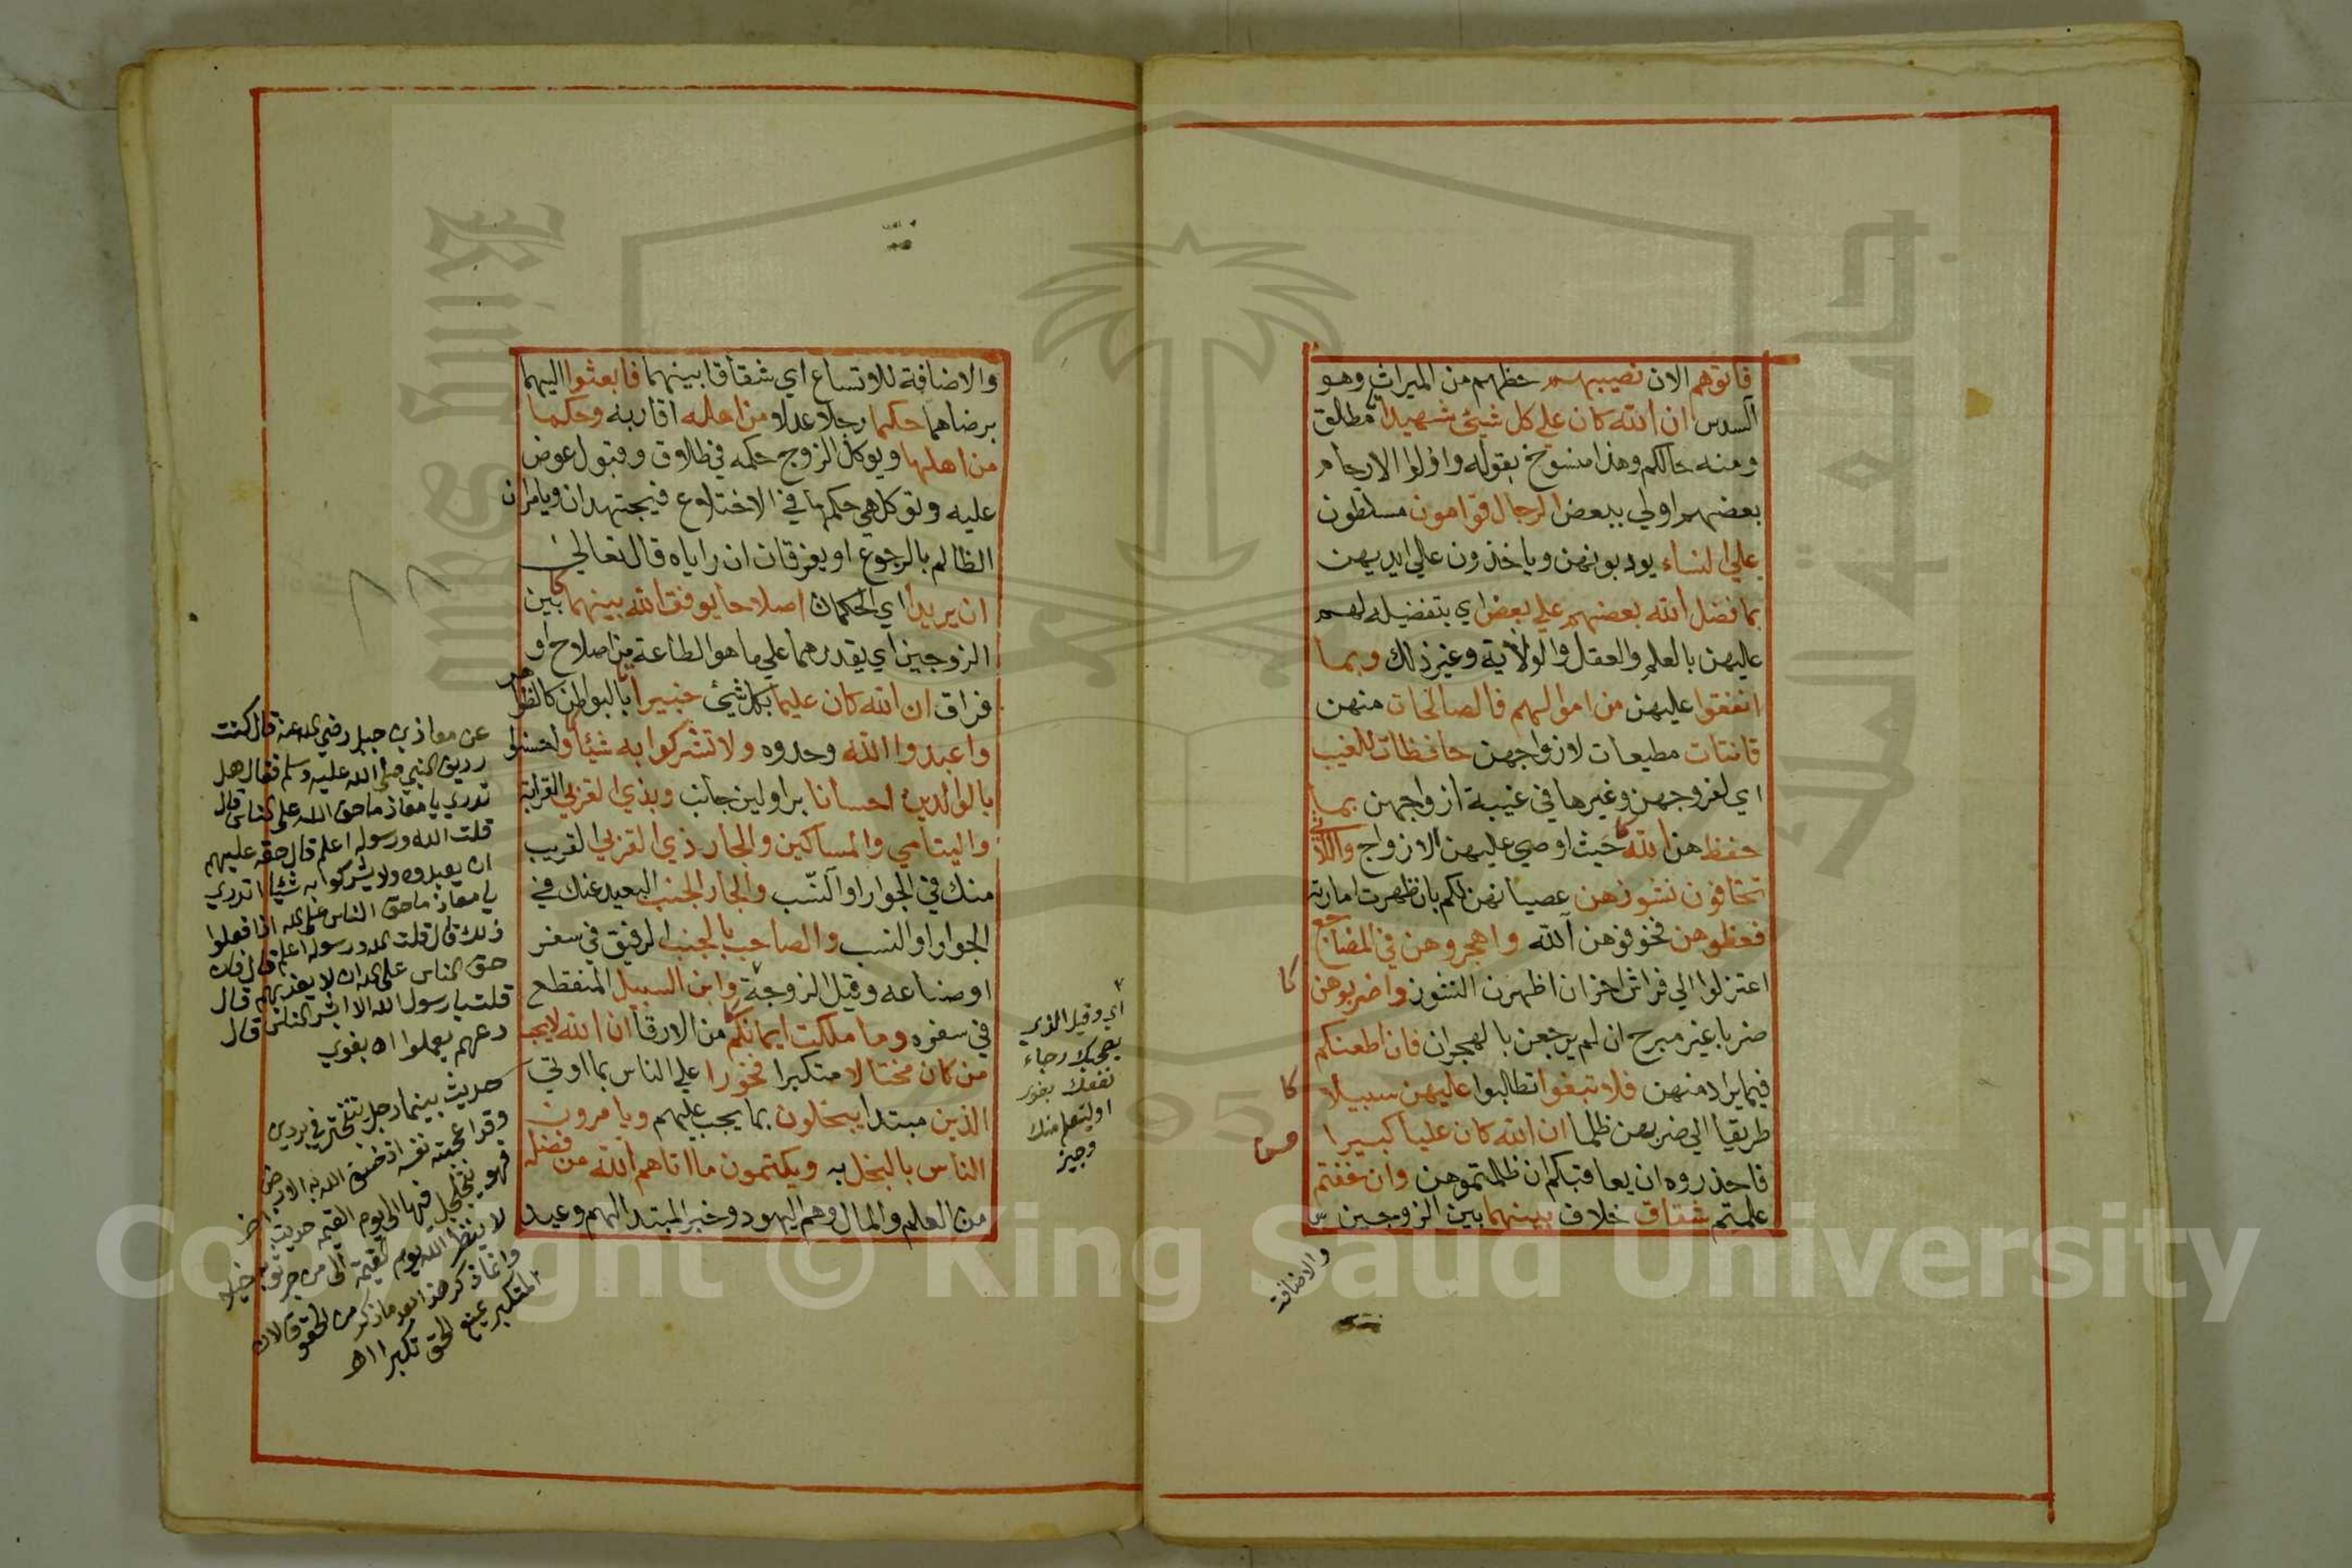 فاتوهم الان نصيبهم حظهم من الميراث وهو
السدس ان الله كان على كل شيئ شهيدا مطلق
ومنه حالكم وهذا منسوخ بقوله واولوا الارحام
بعضهم اولي ببعض الرجال قوامون مسلطون
علي النساء يودبونهن وياخذون علي ايديهن
بما فضل الله بعضهم علي بعض اي بتفضيله لهم
عليهن بالعلم والعقل والولاية وغير ذلك وبما
انفقوا عليهن من اموالهم فالصالحات منهن
قانتات مطيعات لازواجهن حافظات للغيب
اي لفروجهن وغيرها في غيبة ازواجهن بما
حفظ هن الله حيث اوصي عليهن الازواج واللاتي
تخافون نشوزهن عصيانهن لكم بان ظهرت امارته
فعظوهن فخوفوهن الله واهجروهن في المضاجع
اعتزلوا الي فراش اخر ان اظهرن النشوز واضربوهن
ضربا غير مبرح ان لم يرجعن بالهجران فان اطعنكم
فيما يراد منهن فلا تبغوا تطالبوا عليهن سبيلا
طريقا الي ضربهن ظلما ان الله كان عليا كبيرا
فاحذروه ان يعاقبكم ان ظلمتموهن وان خفتم
علمتم شقاق خلاف بينهما بين الزوجين
والاضافة
والاضافة للاتساع اي شقاقا بينهما فابعثوا اليهما
برضاهما حكما رجلا عدلا من اهله اقاربه وحكما
من اهلها ويوكل الزوج حكمه في طلاق وقبول عوض
عليه وتوكل هي حكمها في الاختلاع فيجتهدان ويامران
الظالم بالرجوع او يفرقان ان راياه قال تعالي
ان يريدا اي الحكمان اصلاحا يوفق الله بينهما بين
الزوجين اي يقدرهما علي ما هو الطاعة من اصلاح او
فراق ان الله كان عليما بكل شيئ خبيرا بالبواطن كالظواهر
واعبدوا الله وحدوه ولا تشركوا به شيئا واحسنوا
بالوالدين احسانا برا ولين جانب وبذي القربي القرابة
واليتامي والمساكين والجار ذي القربي القريب
منك في الجوار او النسب والجار الجنب البعيد عنك في
الجوار او النسب والصاحب بالجنب الرفيق في سفر
او صناعه وقيل الزوجة وابن السبيل المنقطع
في سفره وما ملكت ايمانكم من الارقا ان الله لا يحب
من كان مختالا متكبرا فخورا علي الناس بما اوتي
الذين مبتدا يبخلون بما يجب عليهم ويامرون
الناس بالبخل به ويكتمون ما اتاهم الله من فضله
من العلم والمال وهم اليهود وخبر المبتدا لهم وعيد
اي وقيل الذي
يصحبك رجاء
نفعك بغوي
او ليتعلم منك
وجيز
عن معاذ بن جبل رضي الله عنه قال كنت
رديف النبي صلى الله عليه وسلم فقال هل
تدري يا معاذ ما حق الله على الناس قال
قلت الله ورسوله اعلم قال حقه عليهم
ان يعبدوه ولا يشركوا به شيئا اتدري
يا معاذ ما حق الناس على الله اذا فعلوا
ذلك قال قلت الله ورسوله اعلم قال فان
حق الناس على الله ان لا يعذبهم قال
قلت يا رسول الله الا ابشر الناس قال
دعهم يعملوا اه بغوي
حديث بينما رجل يتبختر في بردين
وقد اعجبته نفسه اذ خسف الله به الارض
فهو يتجلجل فيها الى يوم القيمة حديث اخر
لا ينظر الله يوم القيمة الى من جر ثوبه خيلا
وانما ذكر هذا بعد ما ذكر من الحقوق لان
المتكبر يمنع الحق تكبرا اه
Copyright © King Saud University